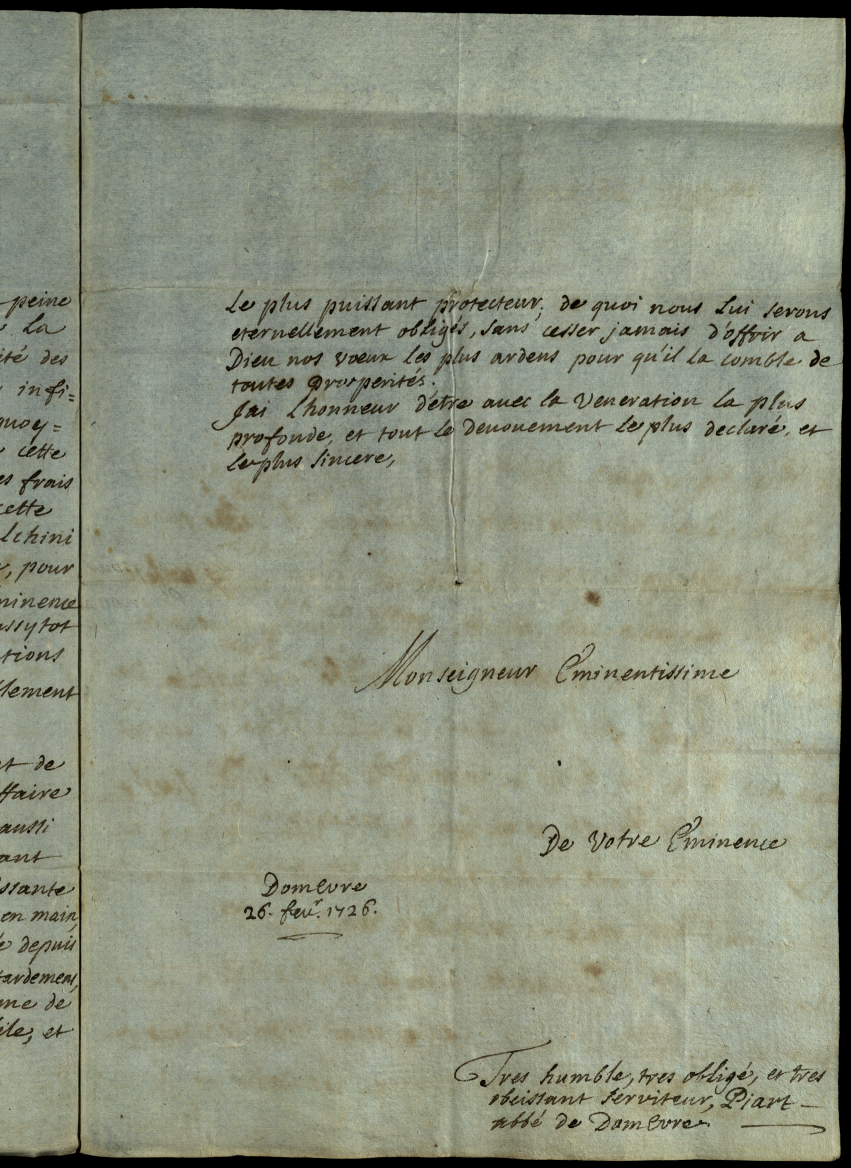 peine
la
ité des
infi=
quoy=
cette
es frais
cette
lchini
, pour
minence
ussytot
tions
lement
et de
ffaire
aussi
ant
ssante
en main,
é depuis
tardemens,
me de
ile, et
Le plus puissant protecteur; de quoi nous Lui serons
eternellement obligés, sans cesser jamais d'offrir a
Dieu nos vœux les plus ardens pour qu'il la comble de
toutes prosperités.
Jai Lhonneur d'etre avec la Veneration La plus
profonde, et tout le devouement Le plus declaré, et
Le plus sincere,
Monseigneur Eminentissime
De Votre Eminence
Domevre
26. fevr. 1726.
Tres humble, tres obligé, et tres
obeissant serviteur, Piart
abbé de Domevre.